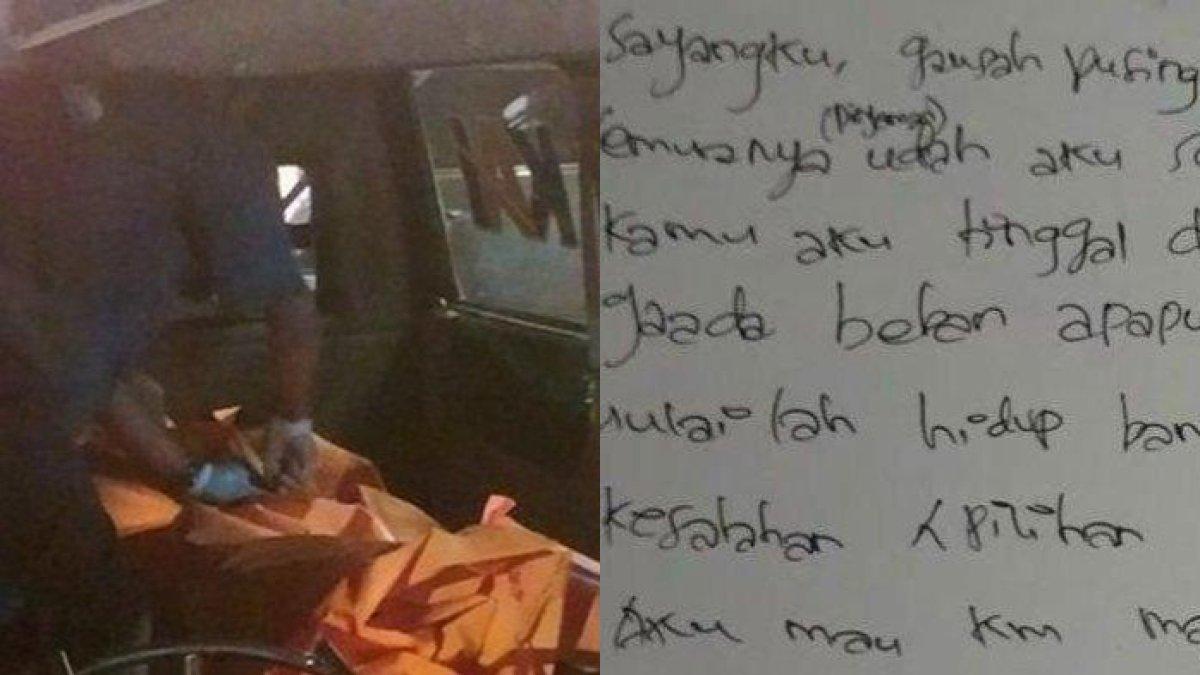 Sayangku, gausah pusing
(pinjaman)
emuanya udah aku sa
kamu aku tinggal d
gaada beban apapu
mulailah hidup bar
kesalahan & pilihan
Aku mau km ma